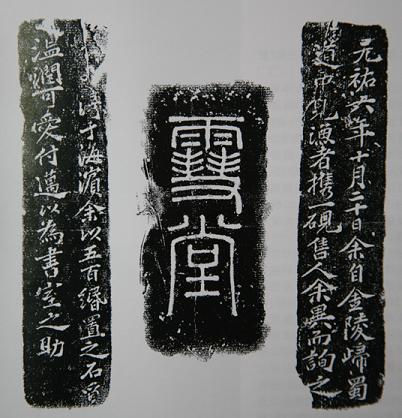 元祐六年十月二十日余自金陵歸蜀
道中見漁者攜一硯售人余異而詢之
雪堂
得于海濱余以五百緡置之石質
温潤可愛付邁以為書室之助